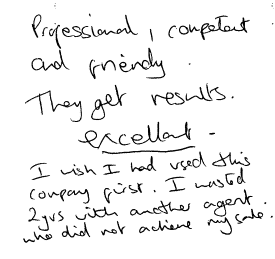 Professional, competent
and friendly.
They get results.
excellent -
I wish I had used this
company first. I wasted
2yrs with another agent
who did not achieve my sale.